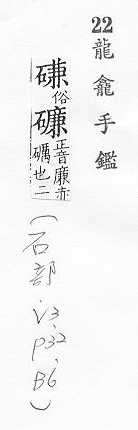 22 龍龕手鑑
𥐻俗礛正音廉赤礪也二
(石部.V3.P32.B6)